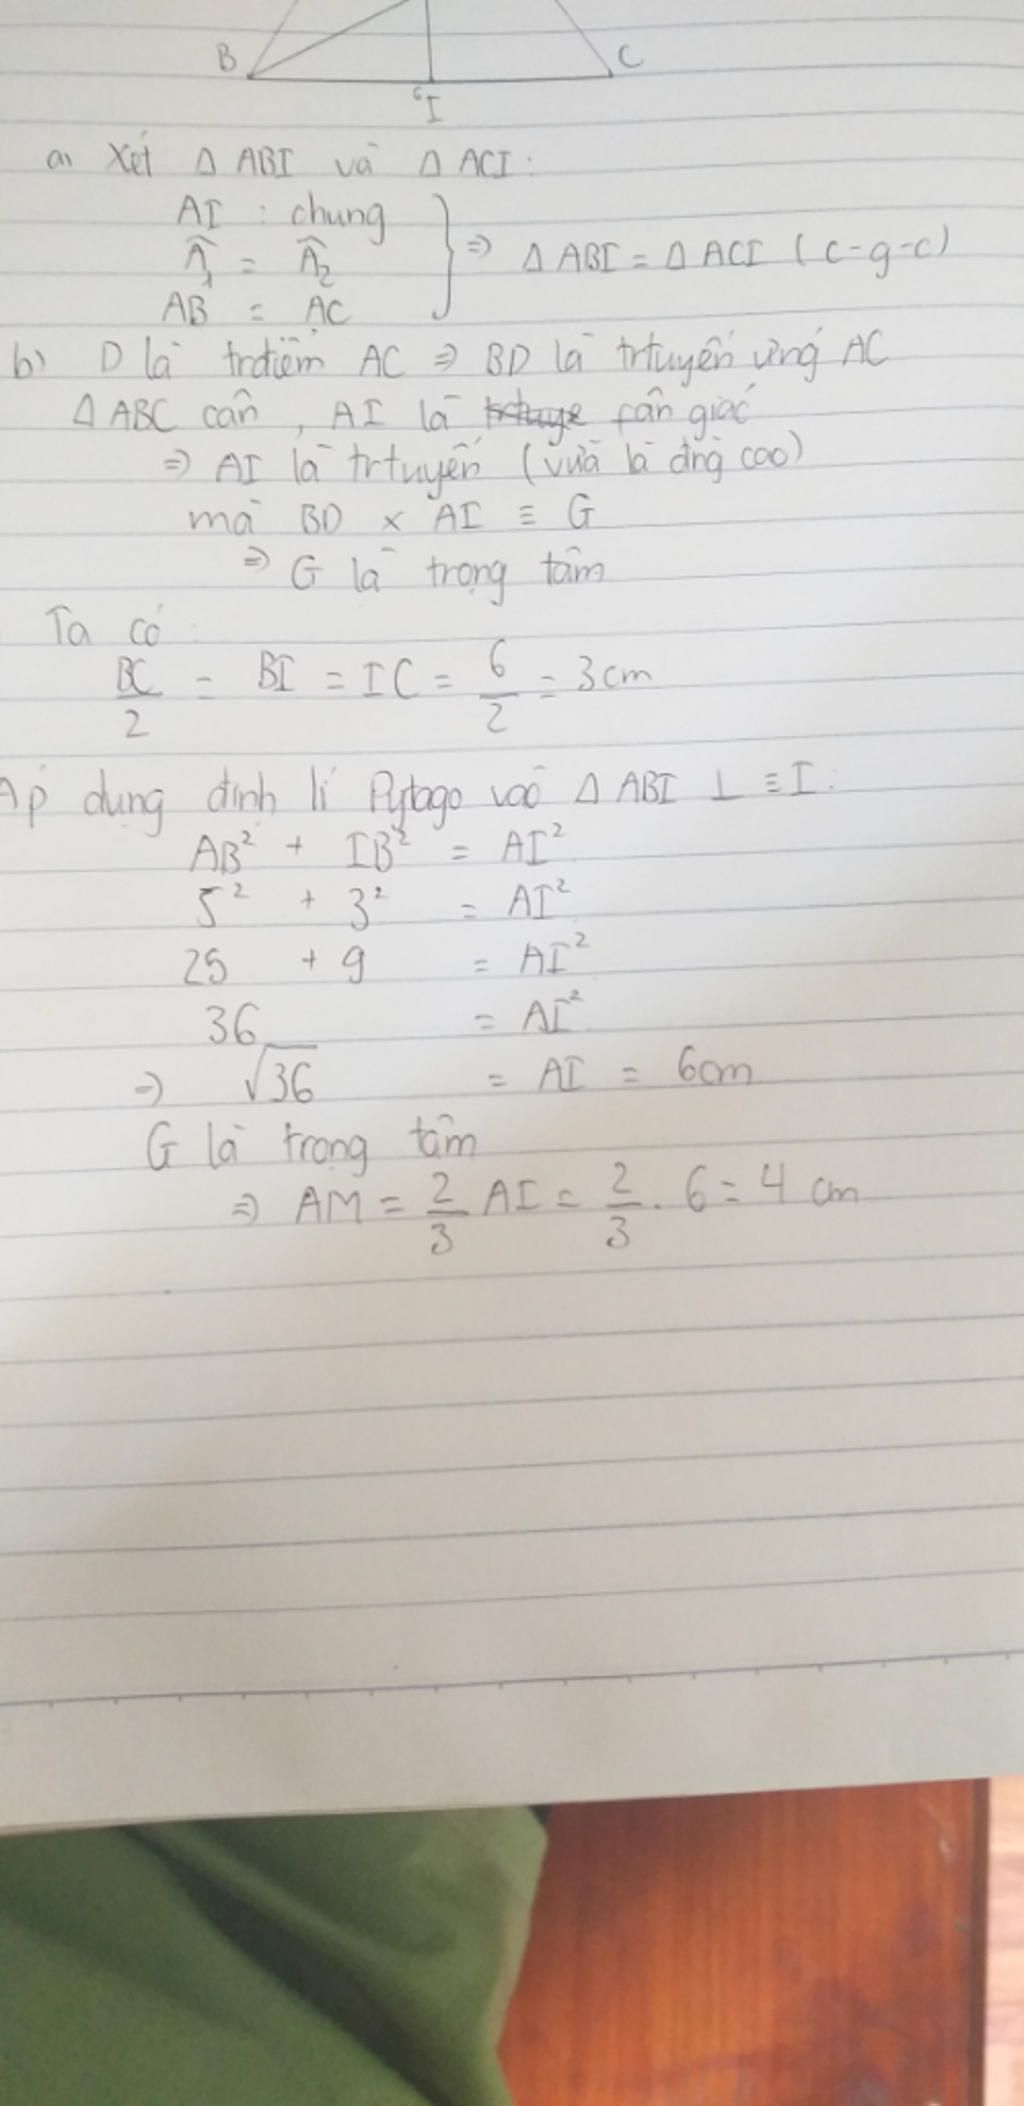 B
C
6
I
a) Xét Δ ABI và Δ ACI:
AI : chung
Â1 = Â2
AB = AC
} ⇒ Δ ABI = Δ ACI (c-g-c)
b) D là trđiểm AC ⇒ BD là trtuyến ứng AC
Δ ABC cân, AI là fân giác
⇒ AI là trtuyến (vừa là đng cao)
mà BD x AI ≡ G
⇒ G là trọng tâm
Ta có :
BC/2 = BI = IC = 6/2 = 3cm
Áp dụng định lí Pytago vào Δ ABI ⊥ ≡ I:
AB² + IB² = AI²
5² + 3² = AI²
25 + 9 = AI²
36 = AI²
⇒ √36 = AI = 6cm
G là trọng tâm
⇒ AM = 2/3 AI = 2/3 . 6 = 4 cm